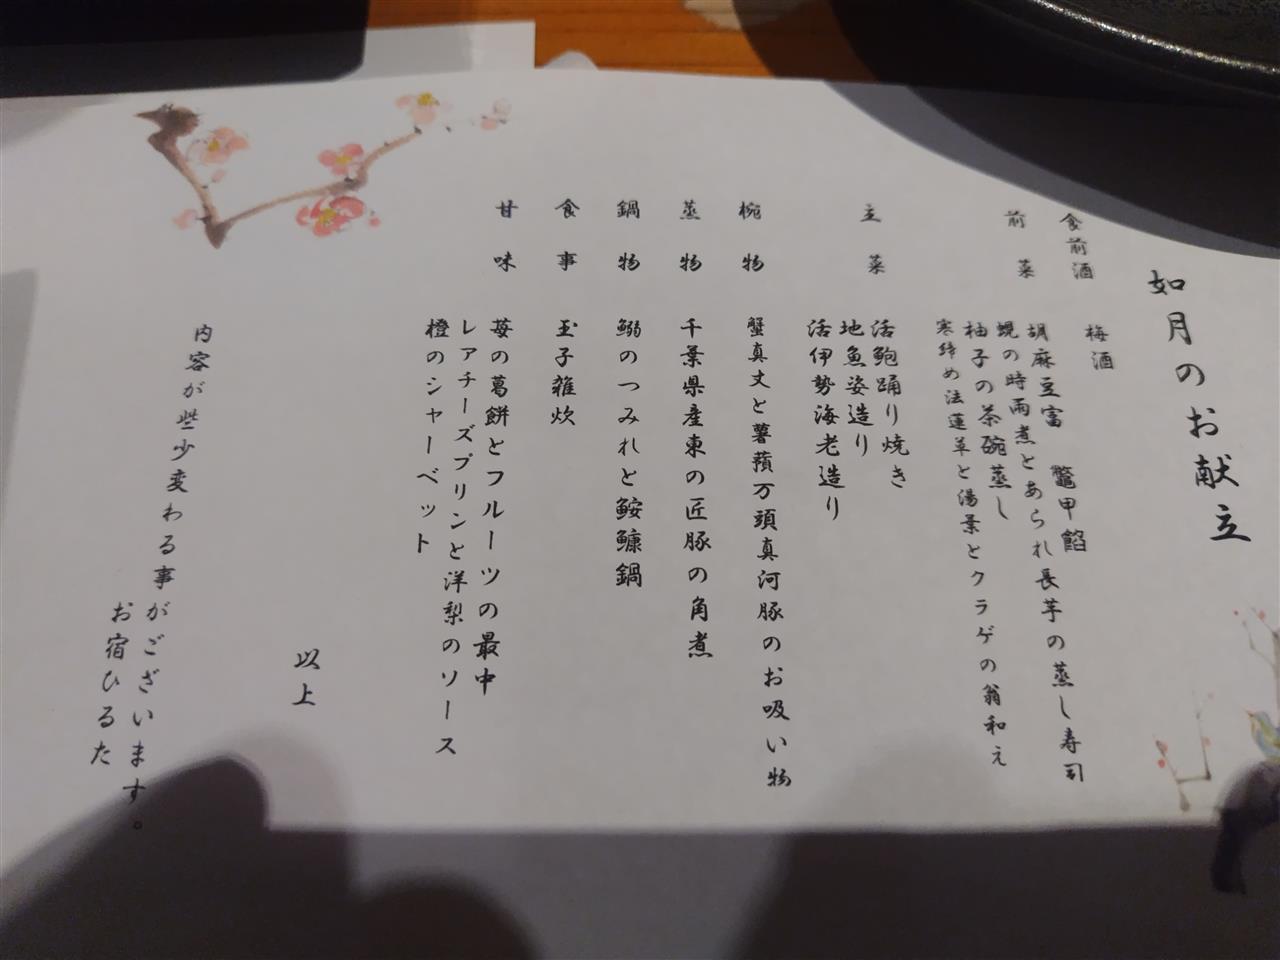 如月のお献立
食前酒 梅酒
前菜 胡麻豆富 鼈甲餡
蜆の時雨煮とあられ長芋の蒸し寿司
柚子の茶碗蒸し
寒締め法蓮草と湯葉とクラゲの翁和え
主菜 活鮑踊り焼き
地魚姿造り
活伊勢海老造り
椀物 蟹真丈と薯蕷万頭真河豚のお吸い物
蒸物 千葉県産東の匠豚の角煮
鍋物 鰯のつみれと鮟鱇鍋
食事 玉子雑炊
甘味 苺の葛餅とフルーツの最中
レアチーズプリンと洋梨のソース
橙のシャーベット
以上
内容が些少変わる事がございます。
お宿ひるた